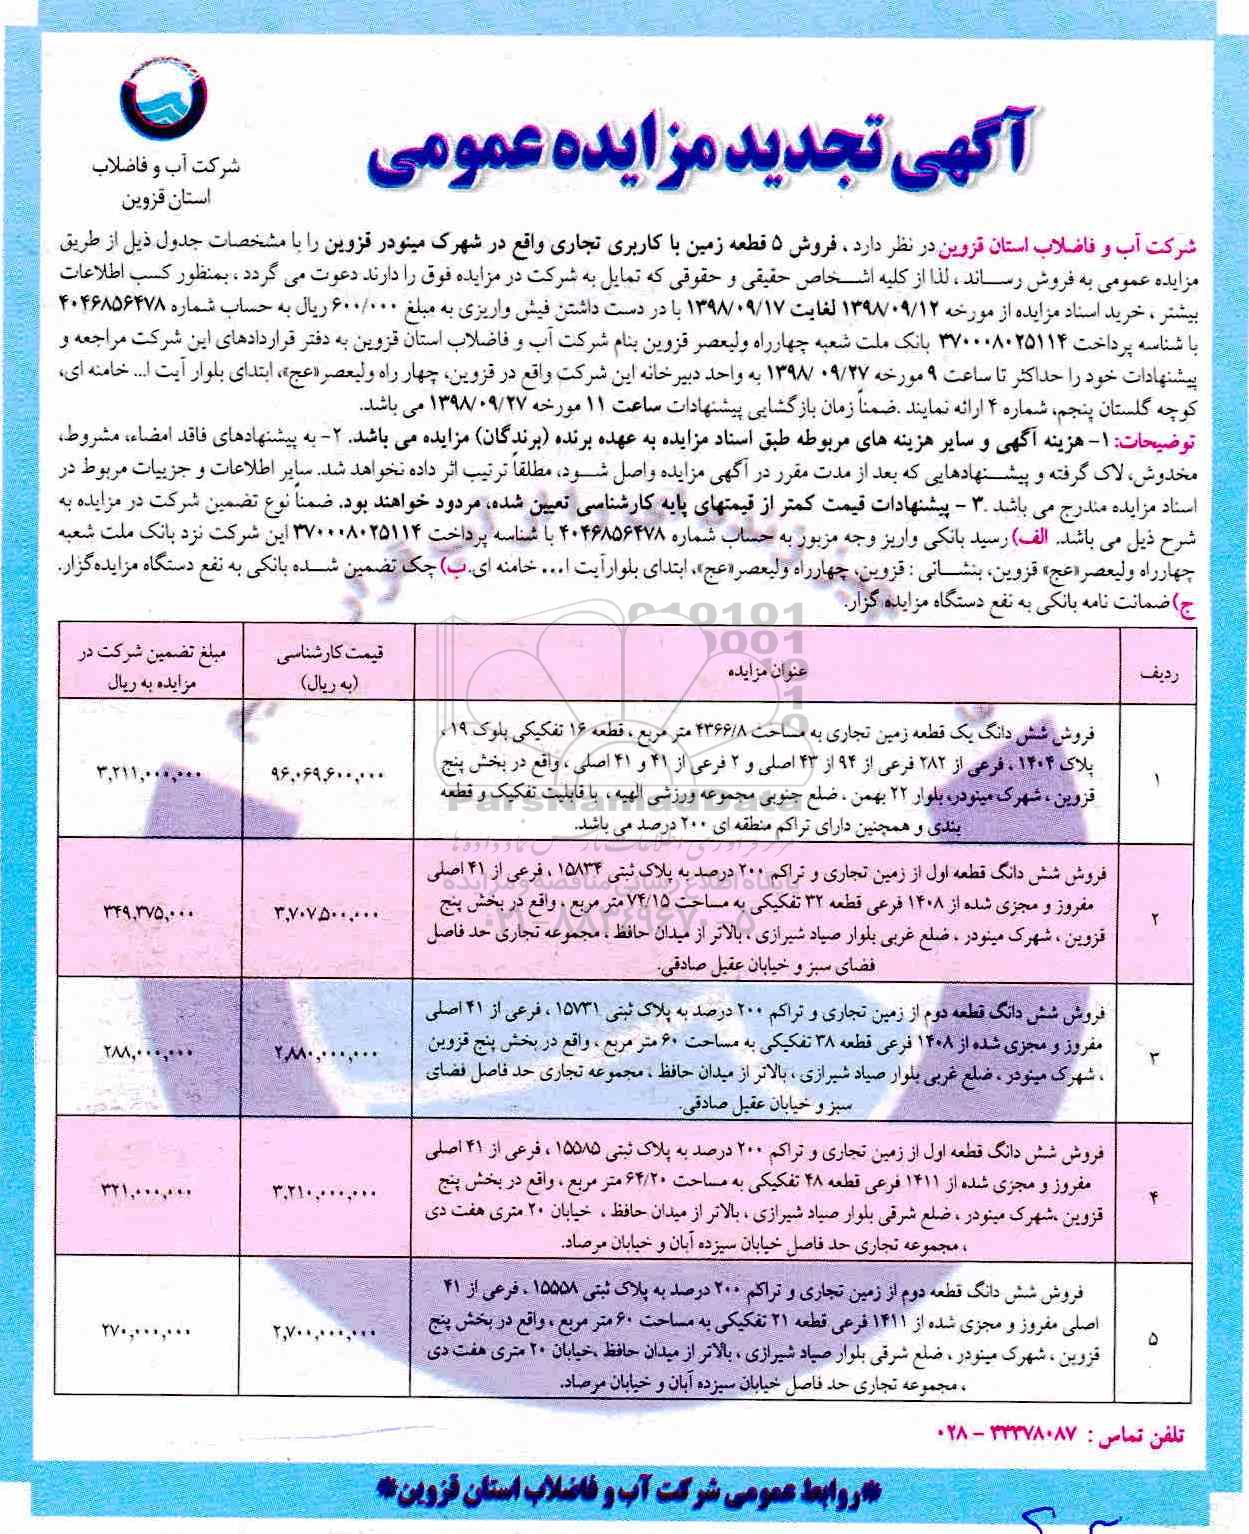 آگهی تجدید مزایده عمومی
شرکت آب و فاضلاب
استان قزوین
شرکت آب و فاضلاب استان قزوین در نظر دارد ، فروش ۵ قطعه زمین با کاربری تجاری واقع در شهرک مینودر قزوین را با مشخصات جدول ذیل از طریق
مزایده عمومی به فروش رساند ، لذا از کلیه اشخاص حقیقی و حقوقی که تمایل به شرکت در مزایده فوق را دارند دعوت می گردد ، بمنظور کسب اطلاعات
بیشتر ، خرید اسناد مزایده از مورخه ۱۳۹۸/۰۹/۱۲ لغایت ۱۳۹۸/۰۹/۱۷ با در دست داشتن فیش واریزی به مبلغ ۶۰۰/۰۰۰ ریال به حساب شماره ۴۰۴۶۸۵۶۴۷۸
با شناسه پرداخت ۳۷۰۰۰۸۰۲۵۱۱۴ بانک ملت شعبه چهارراه ولیعصر قزوین بنام شرکت آب و فاضلاب استان قزوین به دفتر قراردادهای این شرکت مراجعه و
پیشنهادات خود را حداکثر تا ساعت ۹ مورخه ۱۳۹۸/۰۹/۲۷ به واحد دبیرخانه این شرکت واقع در قزوین، چهار راه ولیعصر«عج»، ابتدای بلوار آیت ا... خامنه ای،
کوچه گلستان پنجم، شماره ۴ ارائه نمایند .ضمناً زمان بازگشایی پیشنهادات ساعت ۱۱ مورخه ۱۳۹۸/۰۹/۲۷ می باشد.
توضیحات: ۱- هزینه آگهی و سایر هزینه های مربوطه طبق اسناد مزایده به عهده برنده (برندگان) مزایده می باشد. ۲- به پیشنهادهای فاقد امضاء، مشروط،
مخدوش، لاک گرفته و پیشنهادهایی که بعد از مدت مقرر در آگهی مزایده واصل شود، مطلقاً ترتیب اثر داده نخواهد شد. سایر اطلاعات و جزییات مربوط در
اسناد مزایده مندرج می باشد .۳ - پیشنهادات قیمت کمتر از قیمتهای پایه کارشناسی تعیین شده، مردود خواهند بود. ضمناً نوع تضمین شرکت در مزایده به
شرح ذیل می باشد. الف) رسید بانکی واریز وجه مزبور به حساب شماره ۴۰۴۶۸۵۶۴۷۸ با شناسه پرداخت ۳۷۰۰۰۸۰۲۵۱۱۴ این شرکت نزد بانک ملت شعبه
چهارراه ولیعصر«عج» قزوین، بنشانی : قزوین، چهارراه ولیعصر«عج»، ابتدای بلوارآیت ا... خامنه ای.ب) چک تضمین شده بانکی به نفع دستگاه مزایده‌گزار.
ج) ضمانت نامه بانکی به نفع دستگاه مزایده گزار.
ردیف عنوان مزایده قیمت کارشناسی (به ریال) مبلغ تضمین شرکت در مزایده به ریال
۱ فروش شش دانگ یک قطعه زمین تجاری به مساحت ۴۳۶۶/۸ متر مربع ، قطعه ۱۶ تفکیکی بلوک ۱۹ ،
پلاک ۱۴۰۴ ، فرعی از ۲۸۲ فرعی از ۹۴ از ۴۳ اصلی و ۲ فرعی از ۴۱ و ۴۱ اصلی ، واقع در بخش پنج
قزوین ، شهرک مینودر، بلوار ۲۲ بهمن ، ضلع جنوبی مجموعه ورزشی الهیه ، با قابلیت تفکیک و قطعه
بندی و همچنین دارای تراکم منطقه ای ۲۰۰ درصد می باشد.
۹۶,۰۶۹,۶۰۰,۰۰۰ ۳,۲۱۱,۰۰۰,۰۰۰
۲ فروش شش دانگ قطعه اول از زمین تجاری و تراکم ۲۰۰ درصد به پلاک ثبتی ۱۵۸۳۴ ، فرعی از ۴۱ اصلی
مفروز و مجزی شده از ۱۴۰۸ فرعی قطعه ۳۲ تفکیکی به مساحت ۷۴/۱۵ متر مربع ، واقع در بخش پنج
قزوین ، شهرک مینودر ، ضلع غربی بلوار صیاد شیرازی ، بالاتر از میدان حافظ ، مجموعه تجاری حد فاصل
فضای سبز و خیابان عقیل صادقی.
۳,۷۰۷,۵۰۰,۰۰۰ ۳۴۹,۳۷۵,۰۰۰
۳ فروش شش دانگ قطعه دوم از زمین تجاری و تراکم ۲۰۰ درصد به پلاک ثبتی ۱۵۷۳۱ ، فرعی از ۴۱ اصلی
مفروز و مجزی شده از ۱۴۰۸ فرعی قطعه ۳۸ تفکیکی به مساحت ۶۰ متر مربع ، واقع در بخش پنج قزوین
، شهرک مینودر ، ضلع غربی بلوار صیاد شیرازی ، بالاتر از میدان حافظ ، مجموعه تجاری حد فاصل فضای
سبز و خیابان عقیل صادقی.
۲,۸۸۰,۰۰۰,۰۰۰ ۲۸۸,۰۰۰,۰۰۰
۴ فروش شش دانگ قطعه اول از زمین تجاری و تراکم ۲۰۰ درصد به پلاک ثبتی ۱۵۵۸۵ ، فرعی از ۴۱ اصلی
مفروز و مجزی شده از ۱۴۱۱ فرعی قطعه ۴۸ تفکیکی به مساحت ۶۴/۲۰ متر مربع ، واقع در بخش پنج
قزوین ،شهرک مینودر ، ضلع شرقی بلوار صیاد شیرازی ، بالاتر از میدان حافظ ، خیابان ۲۰ متری هفت دی
، مجموعه تجاری حد فاصل خیابان سیزده آبان و خیابان مرصاد.
۳,۲۱۰,۰۰۰,۰۰۰ ۳۲۱,۰۰۰,۰۰۰
۵ فروش شش دانگ قطعه دوم از زمین تجاری و تراکم ۲۰۰ درصد به پلاک ثبتی ۱۵۵۵۸ ، فرعی از ۴۱
اصلی مفروز و مجزی شده از ۱۴۱۱ فرعی قطعه ۲۱ تفکیکی به مساحت ۶۰ متر مربع ، واقع در بخش پنج
قزوین ، شهرک مینودر ، ضلع شرقی بلوار صیاد شیرازی ، بالاتر از میدان حافظ ،خیابان ۲۰ متری هفت دی
، مجموعه تجاری حد فاصل خیابان سیزده آبان و خیابان مرصاد.
۲,۷۰۰,۰۰۰,۰۰۰ ۲۷۰,۰۰۰,۰۰۰
تلفن تماس : ۳۳۳۷۸۰۸۷ - ۰۲۸
*روابط عمومی شرکت آب و فاضلاب استان قزوین*
ParsNamadData
پایگاه اطلاع رسانی مناقصه و مزایده